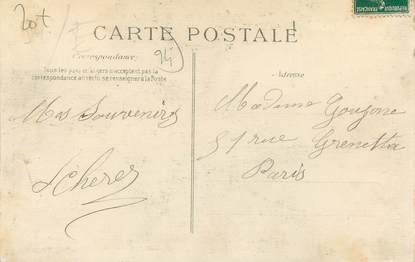 20t
94
CARTE POSTALE
Correspondance
Tous les pays étrangers n'acceptent pas la
correspondance au recto, se renseigner à la Poste
Adresse
Mes Souvenirs
Madame Goujone
51 rue Greneta
Paris